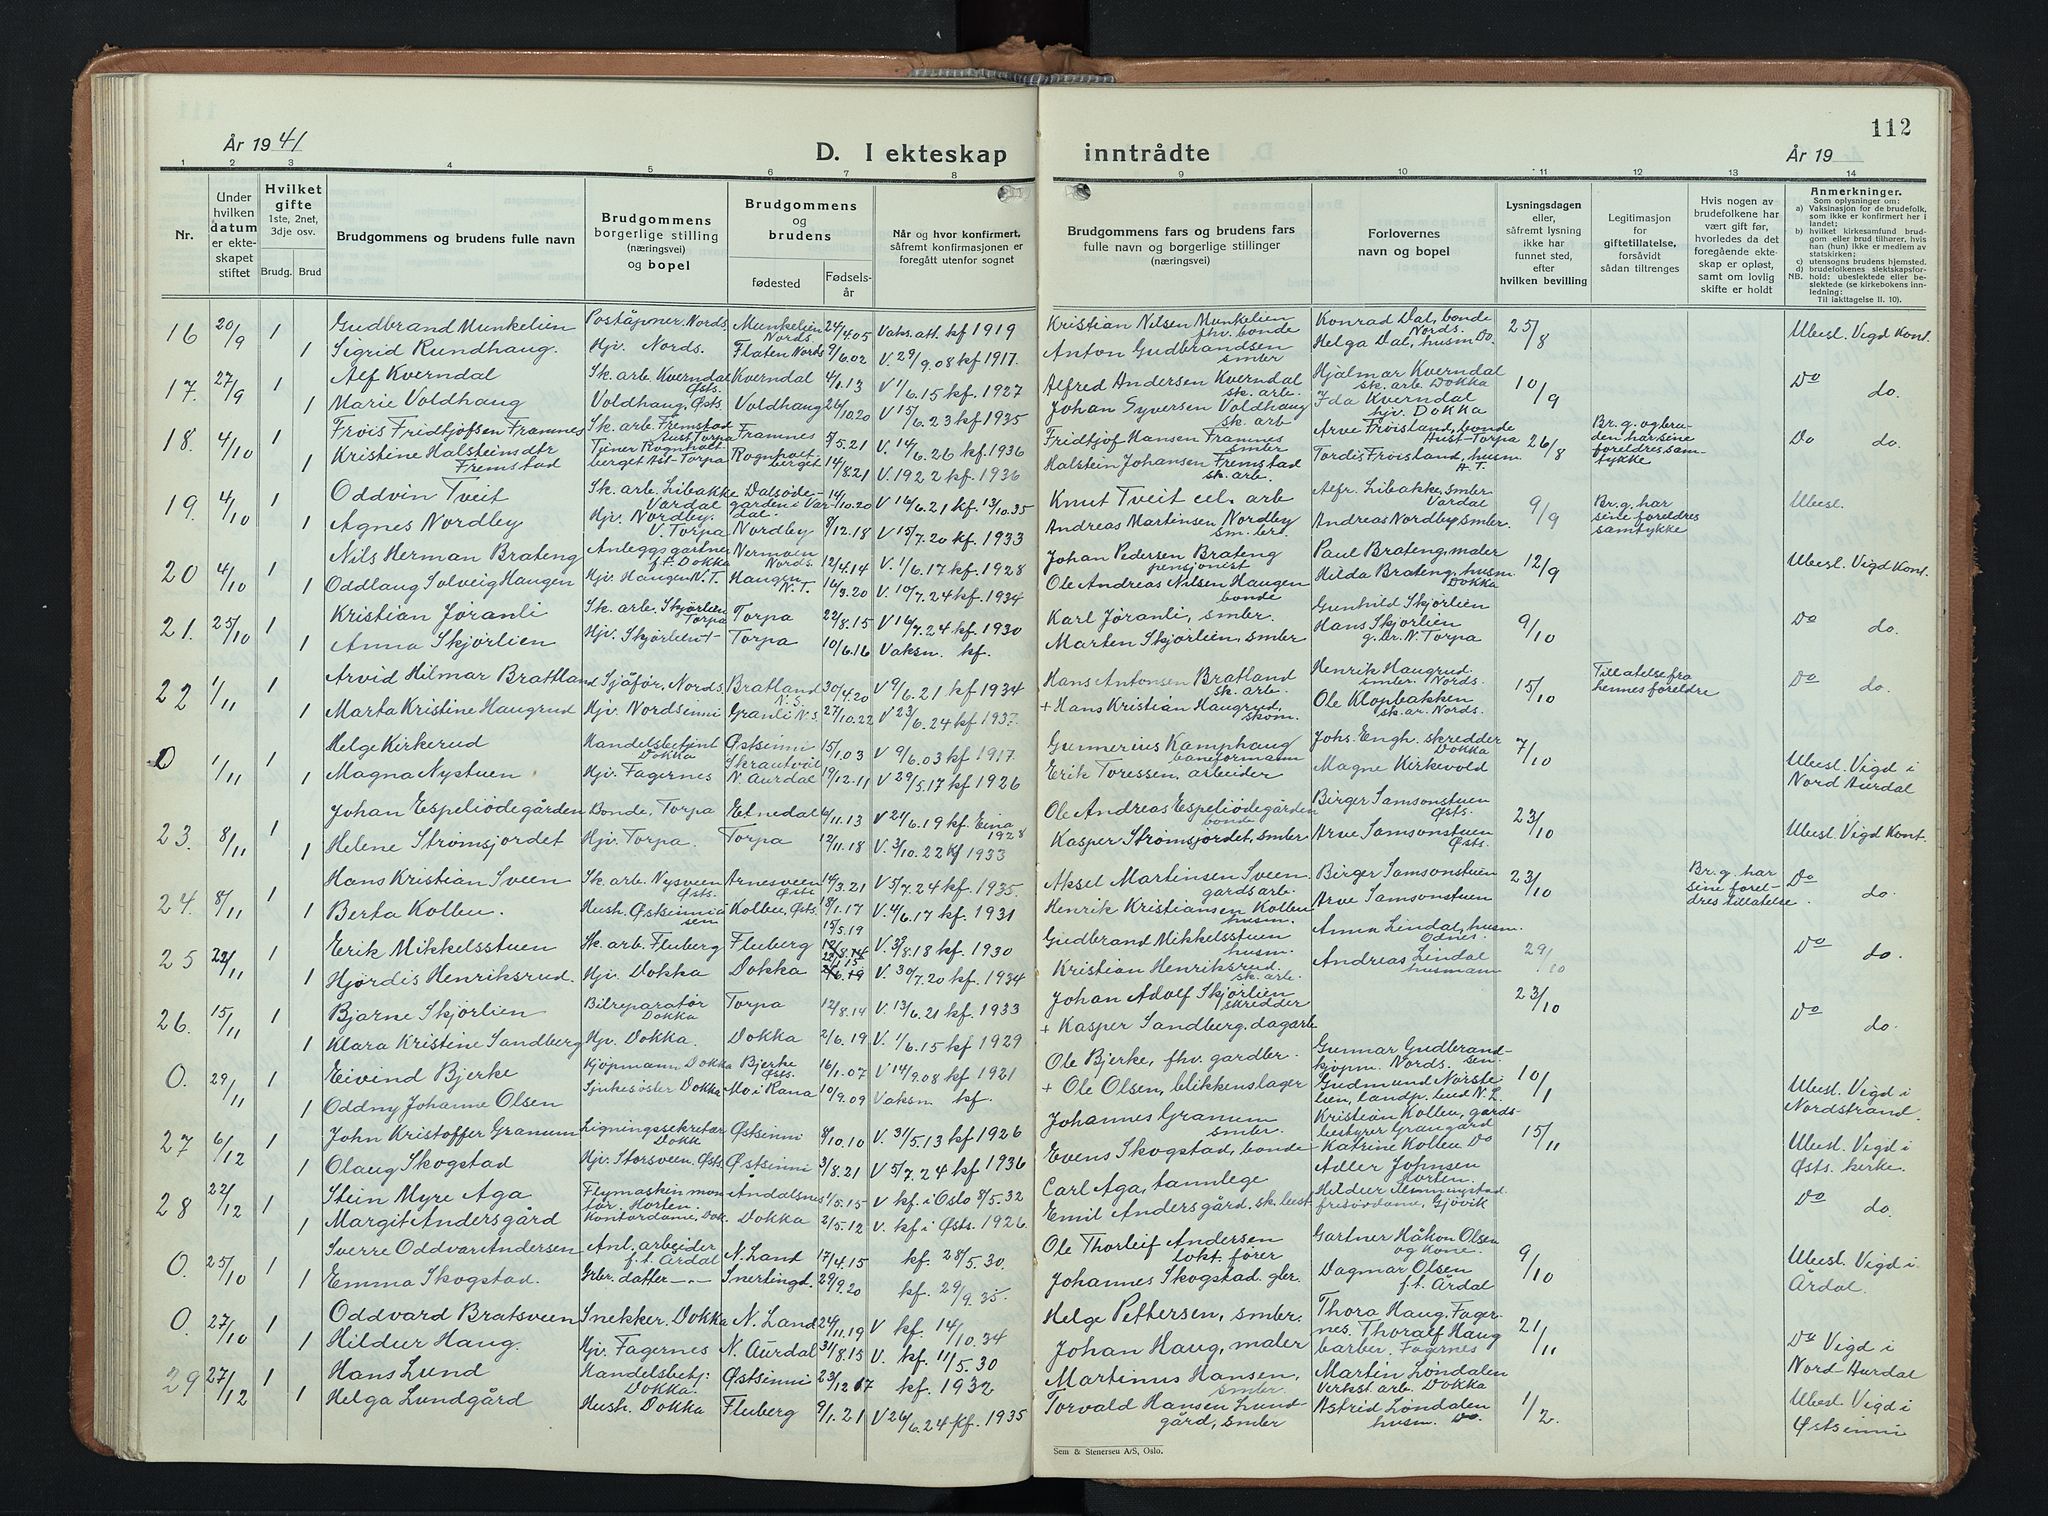 112
År 1941
D. I ekteskap inntrådte
År 19
1 2 3 4 5 6 7 8 9 10 11 12 13 14
Nr.
Under hvilken datum er ekteskapet stiftet
Hvilket gifte 1ste, 2net, 3dje osv.
Brudg. Brud
Brudgommens og brudens fulle navn
Brudgommens borgerlige stilling (næringsvei) og bopel
Brudgommens og brudens
fødested
Fødselsår
Når og hvor konfirmert, såfremt konfirmasjonen er foregått utenfor sognet
Brudgommens fars og brudens fars fulle navn og borgerlige stillinger (næringsvei)
Forlovernes navn og bopel
Lysningsdagen eller, såfremt lysning ikke har funnet sted, efter hvilken bevilling
Legitimasjon for giftetillatelse, forsåvidt sådan tiltrenges
Hvis nogen av brudefolkene har vært gift før, hvorledes da det foregående ekteskap er opløst, samt om lovlig skifte er holdt
Anmerkninger.
Som oplysninger om:
a) Vaksinasjon for de brudefolk, som ikke er konfirmert her i landet;
b) hvilket kirkesamfund brudgom eller brud tilhører, hvis han (hun) ikke er medlem av statskirken;
c) utensogns brudens hjemsted.
d) brudefolkenes slektskapsforhold: ubeslektede eller beslektede (se kirkebokens innledning:
NB.
Til iakttagelse II. 10).
16 20/9 1 Gudbrand Munkelien Poståpner. Nords. Munkelien Nords. 24/4.05 Vaks. att. kf 1919 Kristian Nilsen Munkelien fhv. bonde Konrad Dal, bonde Nords. 25/8 Ubesl. Vigd Kont.
1 Sigrid Rundhaug. Hjv. Nords. Flaten Nords 9/6.02 V. 29/9.08 kf 1917. Anton Gudbrandsen smbr Helga Dal, husm Do.
17. 27/9 1 Alf Kverndal Sk. arb. Kverndal Østs. Kverndal 4/6.13 V 1/6.15 kf. 1927 Alfred Andersen Kverndal sk. arb. Hjalmar Kverndal sk. arb. Dokka 10/9 Do do.
1 Marie Voldhaug Voldhaug, Østs. Voldhaug 26/10.20 V 15/6.23 kf 1935 Johan Syversen Voldhaug sk. arb Ida Kverndal hjv. Dokka
18. 4/10 1 Frøis Fridtjofsen Framnes Sk. arb. Fremstad Aust Torpa Framnes 5/5.21 V. 14/6.26 kf. 1936 Fridtjof Hansen Framnes smbr Arve Frøisland, bonde Aust-Torpa 26/8 Br.g. og bruden har sine foreldres samtykke Do do.
1 Kristine Halsteinsdtr Fremstad Tjener Rognholtberget Aut-Torpa Rognholtberget 14/8.21 V. 1922 kf. 1936 Halstein Johansen Fremstad sk. arb. Tordis Frøisland, husm A.T.
19. 4/10 1 Oddvin Tveit Sk. arb. Libakke Vardal Dalsødegarden i Vardal. 14/10.20 V 16/6.21 kf. 13/10.35 Knut Tveit cel. arb Alfr. Libakke, smbr Vardal 9/9 Br.g. har sine foreldres samtykke Ubesl.
1 Agnes Nordby Hjv. Nordby. V. Torpa Nordby 8/12.18 V 15/7.20 kf. 1933 Andreas Martinsen Nordby sm. br. Andreas Nordby, smbr.
20 4/10 1 Nils Herman Brateng Anleggsgartner f.t. Dokka Nermoen Nords. 12/4.14 V. 1/6.17 kf. 1928 Johan Pedersen Brateng pensjonist Paul Brateng, maler 12/9 Ubesl. Vigd Kont.
1 Oddlaug Solveig Haugen Hjv. Haugen N.T. Haugen N.T. 16/3.20 V. 10/7.24 kf. 1934 Ole Andreas Nilsen Haugen bonde Hilda Brateng, husm Dokka
21. 25/10 1 Kristian Jøranli Sk. arb. Skjørlien Torpa Torpa 22/8.15 V 16/7.24 kf. 1930 Karl Jøranli, smbr. Gunhild Skjørlien 9/10 Do do.
1 Anna Skjørlien Hjv. Skjørlien Torpa 10/6.16 Vaksn. kf. Marten Skjørlien, smbr Hans Skjørlien g. br. N. Torpa
22 1/11 1 Arvid Hilmar Brattland Sjåfør, Nords. Bratland N.S. 30/4.20 V 9/6.21 kf 1934 Hans Antonsen Bratland sk. arb. Henrik Haugrud smbr. Nords. 15/10 Tillatelse fra hennes foreldre Do do.
1 Marta Kristine Haugrud Hjv. Nordsinni Granli N.S. 27/10.22 V 23/6.24 kf 1937. + Hans Kristian Haugrud, skom. Ole Klopbakken sk. ar. Nords.
0 1/11 1 Helge Kirkerud Handelsbetjent Dokka Østsinni 15/1.03 V 9/6.03 kf 1917. Gunnerius Kamphaug baneformann Johs. Engh. skredder Dokka 7/10 Ubesl. Vigd i Nord Aurdal
1 Magna Nystuen Hjv. Fagernes Skrautvål N. Aurdal 19/12.11 V 29/5.17 kf 1926 Erik Toressen, arbeider Magne Kirkevold
23. 8/11 1 Johan Espeliødegården Bonde, Torpa Etnedal 6/11.13 V 27/6.19 kf. Eina 1928 Ole Andreas Espeliødegården bonde Birger Samsonstuen Østs. 23/10 Ubesl. Vigd Kont.
1 Helene Strømsjordet Hjv. Torpa. Torpa 12/11.18 V. 3/10.22 kf 1933 Kasper Strømsjordet, smbr Arve Samsonstuen Østs.
24. 8/11 1 Hans Kristian Sveen Sk. arb. Nysveen Østs. Arnesveen Østs 14/3.21 V 5/7.24 kf 1935. Aksel Martinsen Sveen gardsarb. Birger Samsonstuen 23/10 Br.g. har sine foreldres tillatelse. Do do
1 Berta Kolbu. Hush. Østsinni Kolbu, Østs. 18/1.17 V. 4/6.17 kf. 1931 Henrik Kristiansen Kolbu husm. Arve Samsonstuen
25 22/11 1 Erik Mikkelsstuen Sk. arb. Fluberg Fluberg 15/5.19 V. 3/8.18 kf. 1930 Gudbrand Mikkelsstuen husm. Anna Lindal, husm. Odnes. 29/10 Do do.
1 Hjørdis Henriksrud. Hjv. Dokka Dokka V. 30/7.20 kf. 1934 Kristian Henriksrud. sk. arb. Andreas Lindal husmann
26. 15/11 1 Bjarne Skjørlien Bilreparatør Dokka Torpa 12/8.14 V. 13/6.21 kf. 1933 Johan Adolf Skjørlien skredder 23/10 Do do.
1 Klara Kristine Sandberg Hjv. Dokka. Dokka 2/6.19 V. 1/6.15 kf 1929 + Kasper Sandberg, dagarb
0. 29/11 1 Eivind Bjerke Kjøpmann Dokka Bjerke Østs. 16/1.07 V 14/9.08 kf 1921 Ole Bjerke, fhv. gardbr. Gunnar Gudbrandsen kjøpm. Nords. 10/1 Ubesl. Vigd i Nordstrand
1 Oddny Johanne Olsen Sjukesøster Dokka Mo i Rana 10/9.09 Vaksn. kf. + Ole Olsen, blikkenslager Gudmund Nørstelien, landp. bud N.L.
27 6/12 1 John Kristoffer Granum Ligningssekretær Dokk Østsinni 8/10.10 V. 31/5.13 kf 1926 Johannes Granum smbr. Kristian Kolbu, gardsbestyrer Graugård 15/11 Ubesl. Vigd i Østs. kerke.
1 Olaug Skogstad Hjv. Storsveen Østs. Østsinni 3/8.21 V 5/7.24 kf 1936 Evens Skogstad, bonde Katrine Kolbu Do
28 22/12 1 Stein Myre Aga Flymaskin montør Horten. Åndalsnes 1/5.15 V kf. i Oslo 8/5.32 Carl Aga, tannlege Adler Johnsen Horten. Do do.
1 Margit Andersgård Kontordame, Dok. Dokka 2/5.12 V. kf i Østs. 1926. Emil Andersgård. sk. best Hildur frisørdame, Gjøvik
0. 25/10 1 Sverre Oddvar Andersen Anl. arbeider f.t. Årdal N. Land 17/4.15 kf. 28/5.30. Ole Thorleif Andersen lokt. fører Gartner Håkon Olsen og kone. 9/10 Ubesl. Vigd i Årdal.
1 Emma Skogstad. Grbr. datter -"- Snertingd. 29/9.20 kf. 29/9.35. Johannes Skogstad gbr. Dagmar Olsen f.t. Årdal
0. 27/10 1 Oddvard Bratsveen Snekker. Dokka N. Land 24/11.19 V kf. 14/10.34 Helge Pettersen, smbr. Thora Haug, Fagernes. Thoralf Haug barber. Fagernes 21/11 Do Vigd i Nord-Aurdal
1 Hildur Haug. Hjv. Fagernes N. Aurdal 31/8.15 V. kf. 11/5.30 Johan Haug, maler
29 27/12 1 Hans Lund Handelsbetj. Dokka. Østsinni 23/12.17 kf. 1932 Martinus Hansen, smbr. Martin Løndalen Verkst. arb. Dokka 1/2. Ubesl. Vigd i Østsinni
1 Helga Lundgård Hush. Dokka Fluberg 9/1.21 V 26/6.24 kf. 1935 Torvald Hansen Lundgård, smbr Astrid Løndalen husm. Do.
Sem & Stenersen A/S, Oslo.